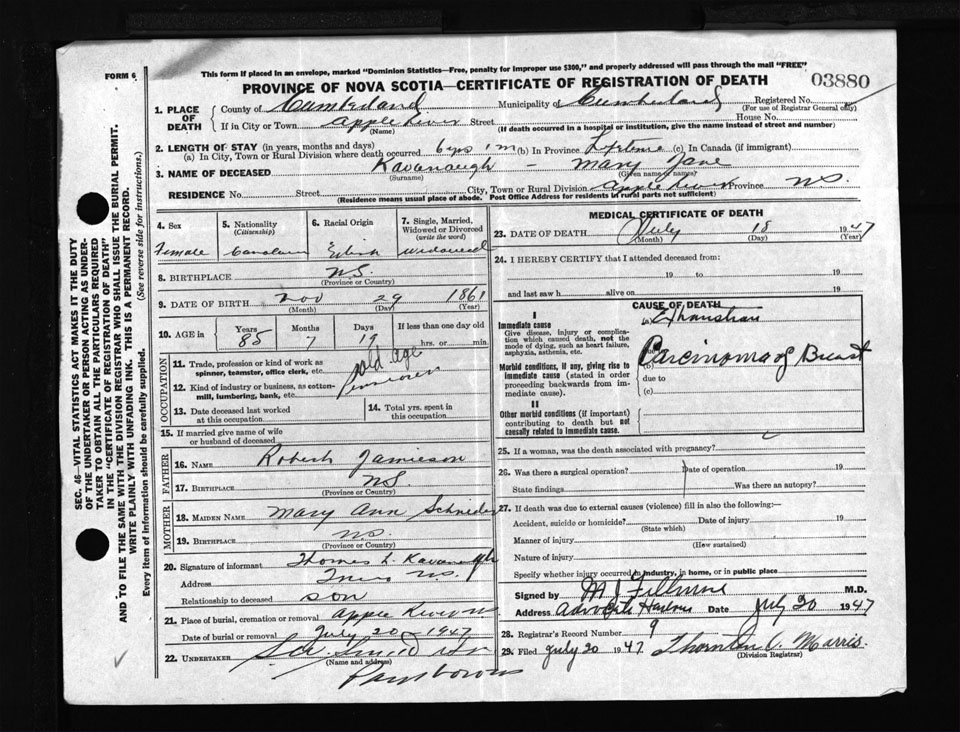 FORM 6
This form if placed in an envelope, marked "Dominion Statistics—Free, penalty for improper use $300," and properly addressed will pass through the mail "FREE"
PROVINCE OF NOVA SCOTIA—CERTIFICATE OF REGISTRATION OF DEATH
03880
1. PLACE OF DEATH
County of Cumberland Municipality of Cumberland Registered No.
(For use of Registrar General only)
If in City or Town Apple River Street House No.
(Name) (If death occurred in a hospital or institution, give the name instead of street and number)
2. LENGTH OF STAY (in years, months and days)
(a) In City, Town or Rural Division where death occurred 6 yrs 1 m (b) In Province Lifetime (c) In Canada (if immigrant)
3. NAME OF DECEASED Kavanaugh - Mary Jane
(Surname) (Given name or names)
RESIDENCE No. Street City, Town or Rural Division Apple River Province N.S.
(Residence means usual place of abode. Post Office Address for residents in rural parts not sufficient)
4. Sex
Female
5. Nationality
(Citizenship)
Canadian
6. Racial Origin
7. Single, Married, Widowed or Divorced
(write the word)
Widowed
8. BIRTHPLACE N.S.
(Province or Country)
9. DATE OF BIRTH Nov 29 1861
(Month) (Day) (Year)
10. AGE in Years Months Days If less than one day old
85 7 19 hrs. or min.
OCCUPATION
11. Trade, profession or kind of work as spinner, teamster, office clerk, etc. old age
12. Kind of industry or business, as cotton-mill, lumbering, bank, etc. pensioner
13. Date deceased last worked at this occupation
14. Total yrs. spent in this occupation
15. If married give name of wife or husband of deceased
FATHER
16. NAME Robert Jamieson
17. BIRTHPLACE N.S.
(Province or Country)
MOTHER
18. MAIDEN NAME Mary Ann
19. BIRTHPLACE N.S.
(Province or Country)
20. Signature of informant Thomas L. Kavanaugh
Address Truro N.S.
Relationship to deceased son
21. Place of burial, cremation or removal Apple River
Date of burial or removal July 20 1947
22. UNDERTAKER
(Name and address)
Parrsboro
MEDICAL CERTIFICATE OF DEATH
23. DATE OF DEATH July 18 1947
(Month) (Day) (Year)
24. I HEREBY CERTIFY that I attended deceased from:
19 to 19
and last saw h alive on 19
CAUSE OF DEATH
I
Immediate cause
Give disease, injury or complication which caused death, not the mode of dying, such as heart failure, asphyxia, asthenia, etc.
(a) Exhaustion
due to
Morbid conditions, if any, giving rise to immediate cause (stated in order proceeding backwards from immediate cause).
(b) Carcinoma of Breast
due to
(c)
II
Other morbid conditions (if important) contributing to death but not causally related to immediate cause.
25. If a woman, was the death associated with pregnancy?
26. Was there a surgical operation? Date of operation 19
State findings Was there an autopsy?
27. If death was due to external causes (violence) fill in also the following:—
Accident, suicide or homicide? Date of injury 19
(State which)
Manner of injury
(How sustained)
Nature of injury
Specify whether injury occurred in industry, in home, or in public place
Signed by M J Fillmore M.D.
Address Advocate Harbour Date July 20 1947
28. Registrar's Record Number 9
29. Filed July 20 1947 Thornton C. Morris
(Division Registrar)
SEC. 46—VITAL STATISTICS ACT MAKES IT THE DUTY
OF THE UNDERTAKER OR PERSON ACTING AS UNDERTAKER
TO OBTAIN ALL THE PARTICULARS REQUIRED
IN THE "CERTIFICATE OF REGISTRATION OF DEATH"
AND TO FILE THE SAME WITH THE DIVISION REGISTRAR WHO SHALL ISSUE THE BURIAL PERMIT.
WRITE PLAINLY WITH UNFADING INK. THIS IS A PERMANENT RECORD.
Every item of Information should be carefully supplied. (See reverse side for instructions.)